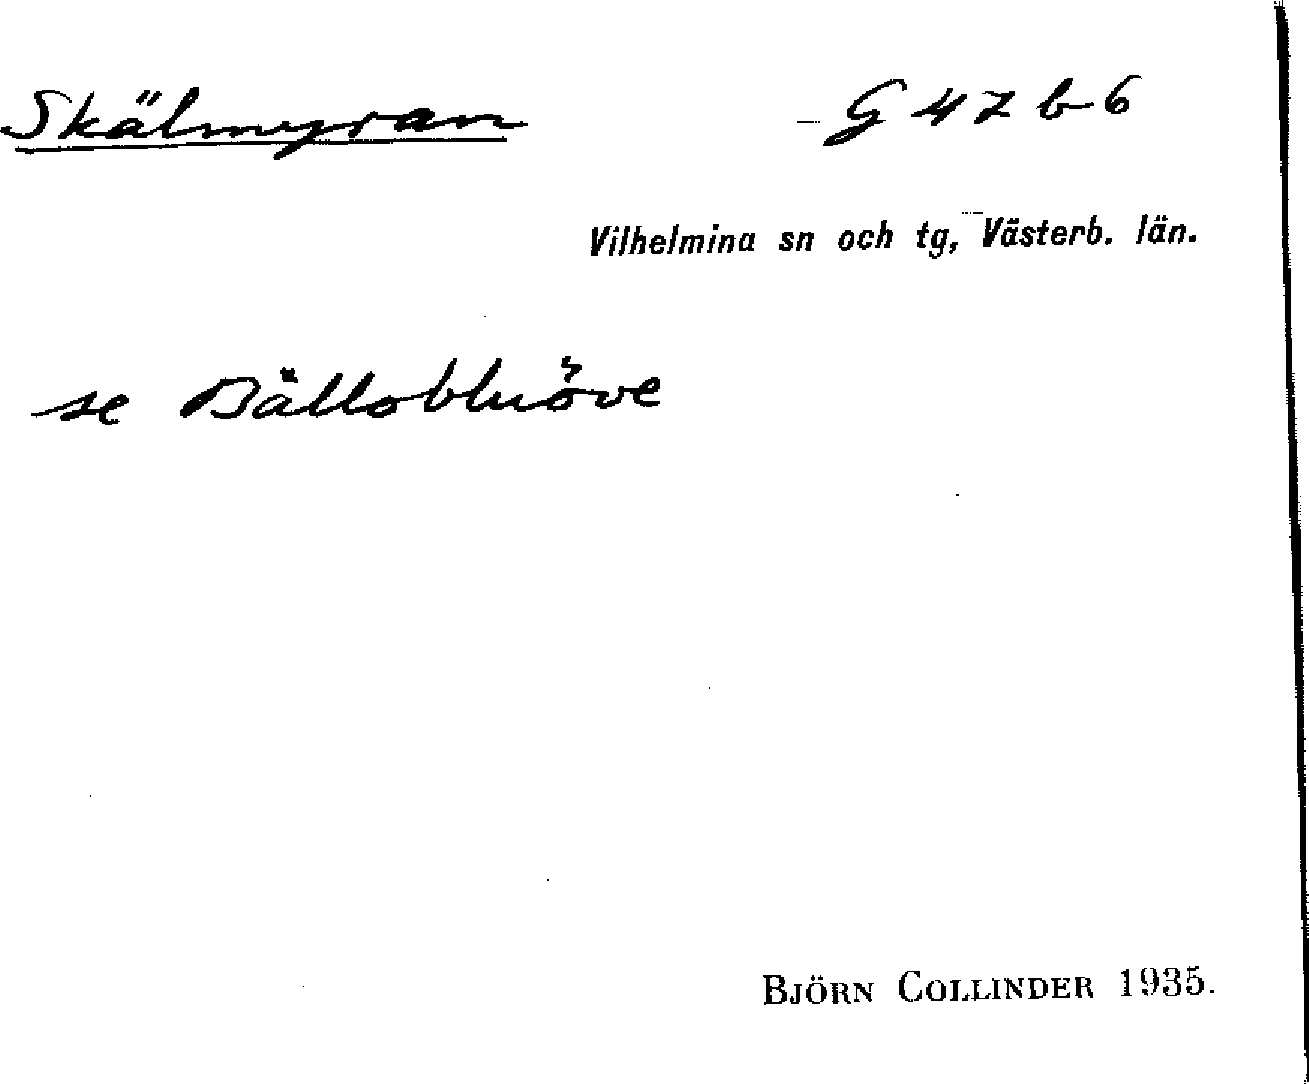 Skälmyran
G 47 b 6
Vilhelmina sn och tg, Västerb. län.
se
BJÖRN COLLINDER 1935.